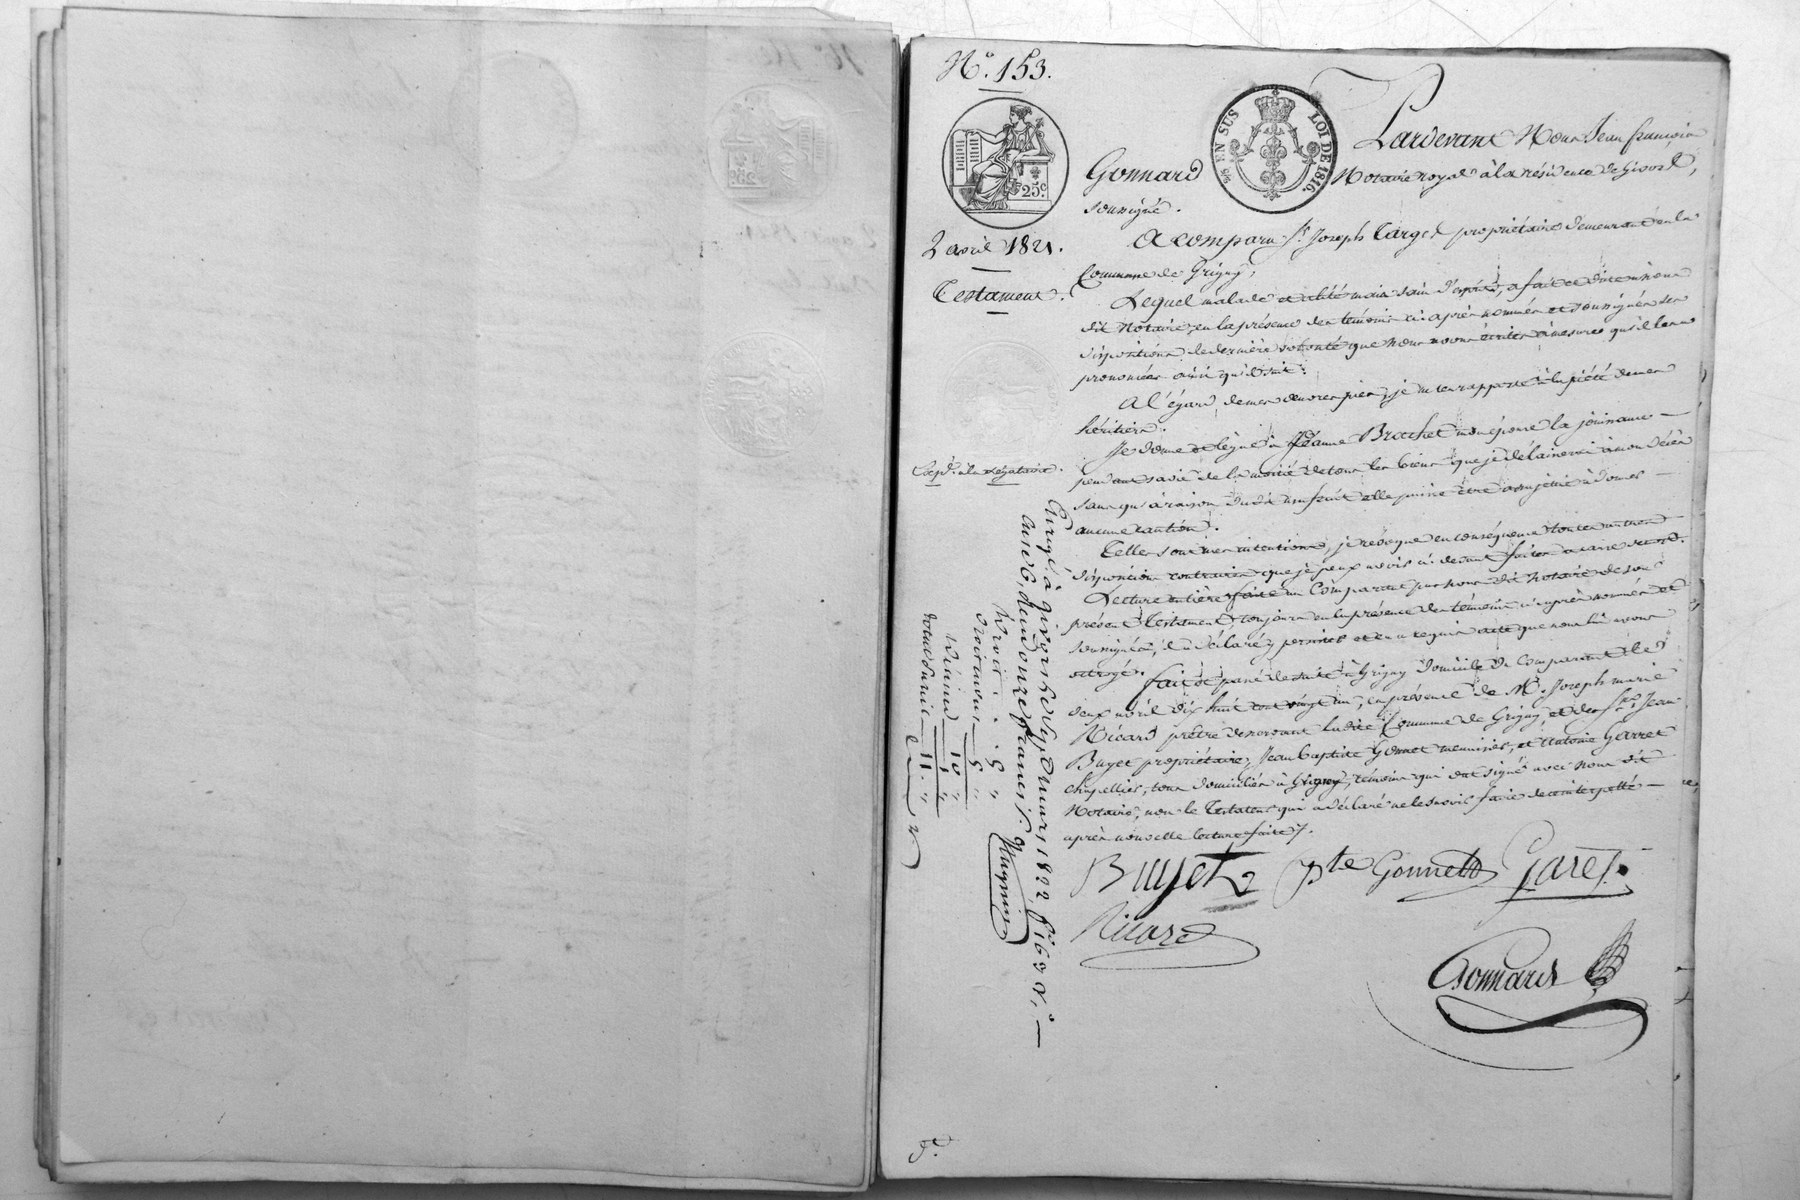 N.° 153.
EN SUS
LOI DE 1816.
25.c
2 avril 1821.
Testament.
Pardevant Nous Jean françois
Gonnard Notaire royal à la résidence de Givors,
soussigné.
A comparu Sr. Joseph Targe propriétaire demeurant en la
Commune de Grigny,
Lequel malade et alité mais sain d'esprit, a fait et dicté à nous
dit Notaire, en la présence des témoins ci-après nommés et soussignés ses
dispositions de dernière volonté que nous avons écrites à mesure qu'il les a
prononcées ainsi qu'il suit:
A l'égard de mes œuvres pies, je m'en rapporte à la piété de mes
héritiers.
Je donne et lègue à Jeanne Brachet mon épouse la jouissance
pendant sa vie de la moitié de tous les biens que je délaisserai à mon décès
sans qu'à raison dudit usufruit elle puisse être assujettie à donner
aucune caution.
Telles sont mes intentions, je révoque en conséquence toutes autres
dispositions contraires que je peux avoir ci-devant faites
Lecture entière faite au Comparant par nous dit Notaire de son
présent Testament, toujours en la présence des témoins ci-après nommés et
soussignés, il a déclaré y persister et en a requis acte que nous lui avons
octroyé.
fait et passé de suite à Grigny domicile du Comparant le
deux avril dix huit cent vingt un, en présence de Mr. Joseph marie
Ricard prêtre desservant ladite Commune de Grigny, et des Srs. Jean
Buyet propriétaire, Jean baptiste Gonnet menuisier, et Antoine Garret
chapellier, tous domiciliés à Grigny, témoins qui ont signé avec nous dit
Notaire, non le Testateur qui a déclaré ne le savoir faire de ce interpellé
après nouvelle lecture faite.
Buyet Bte Gonnett Garet
Ricard
Gonnard
Exp.d. à la légataire.
Enregé. à givors le sept mars 1822, f° 162 v.°
case 6, reçu onze francs
10
1
11